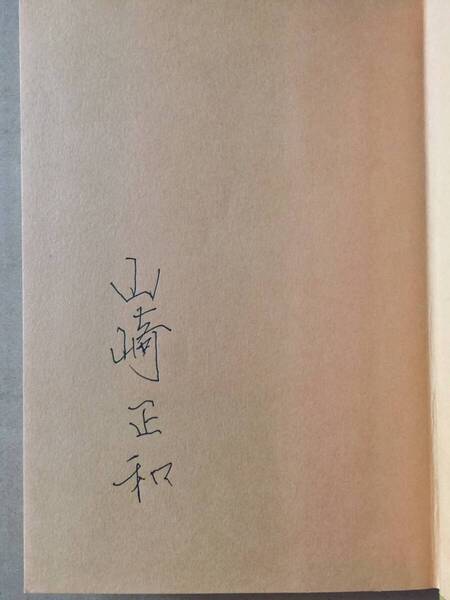 山崎正和